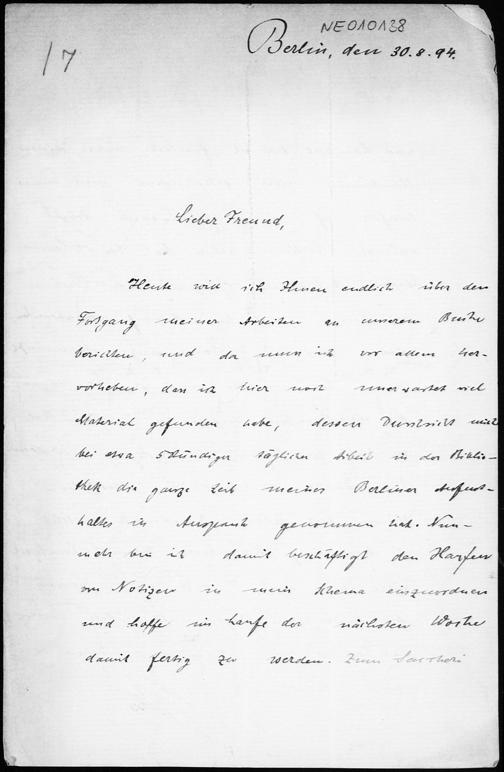 NE010138
/7
Berlin, den 30.8.94.
Lieber Freund,
Heute will ich Ihnen endlich über den
Fortgang meiner Arbeiten an unserem Buche
berichten, und da muss ich vor allem her-
vorheben, dass ich hier noch unerwartet viel
Material gefunden habe, dessen Durchsicht mich
bei etwa 5stündiger täglicher Arbeit in der Biblio-
thek die ganze Zeit meines Berliner Aufent-
haltes in Anspruch genommen hat. Nun-
mehr bin ich damit beschäftigt den Haufen
von Notizen in mein Schema einzuordnen
und hoffe im Laufe der nächsten Woche
damit fertig zu werden. Zum Saccheri